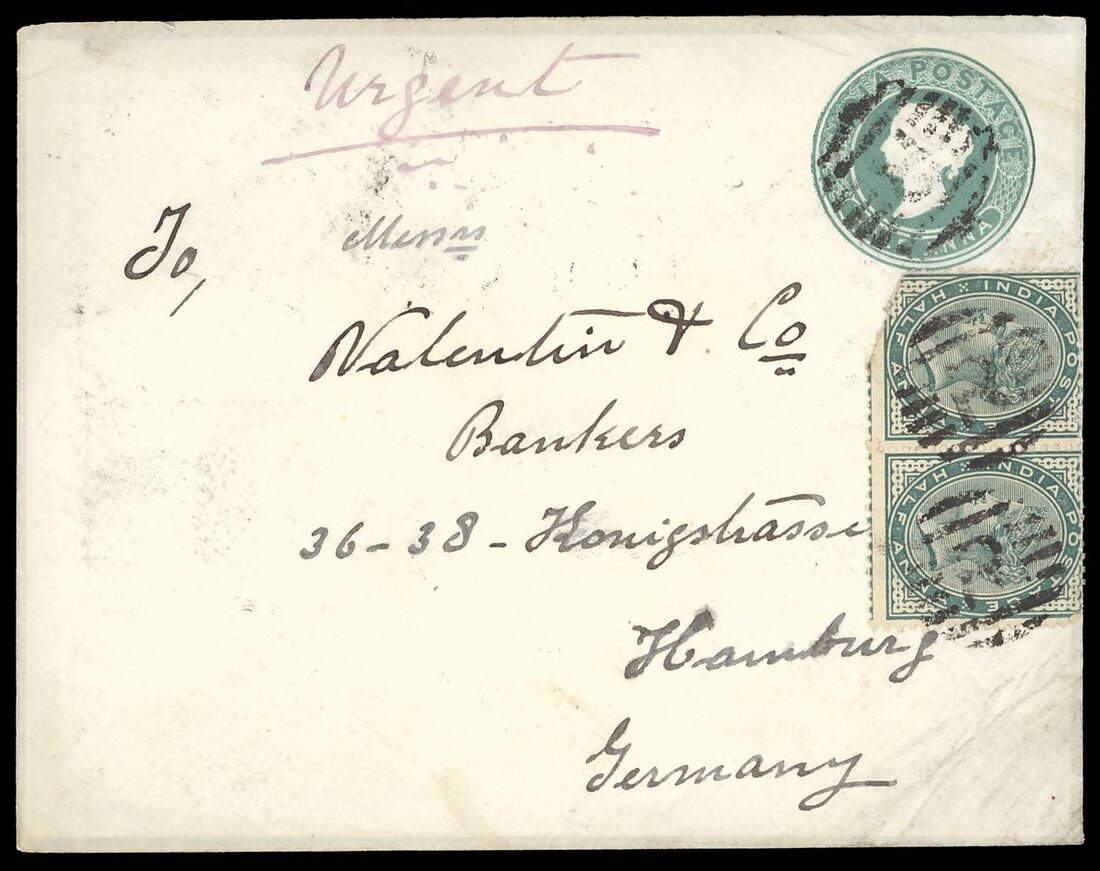 Urgent
INDIA POSTAGE
ANNA
To,
Messrs
Valentin & Co
Bankers
36-38-Konigstrasse
Hamburg
Germany
INDIA POSTAGE
HALF ANNA
INDIA POSTAGE
HALF ANNA